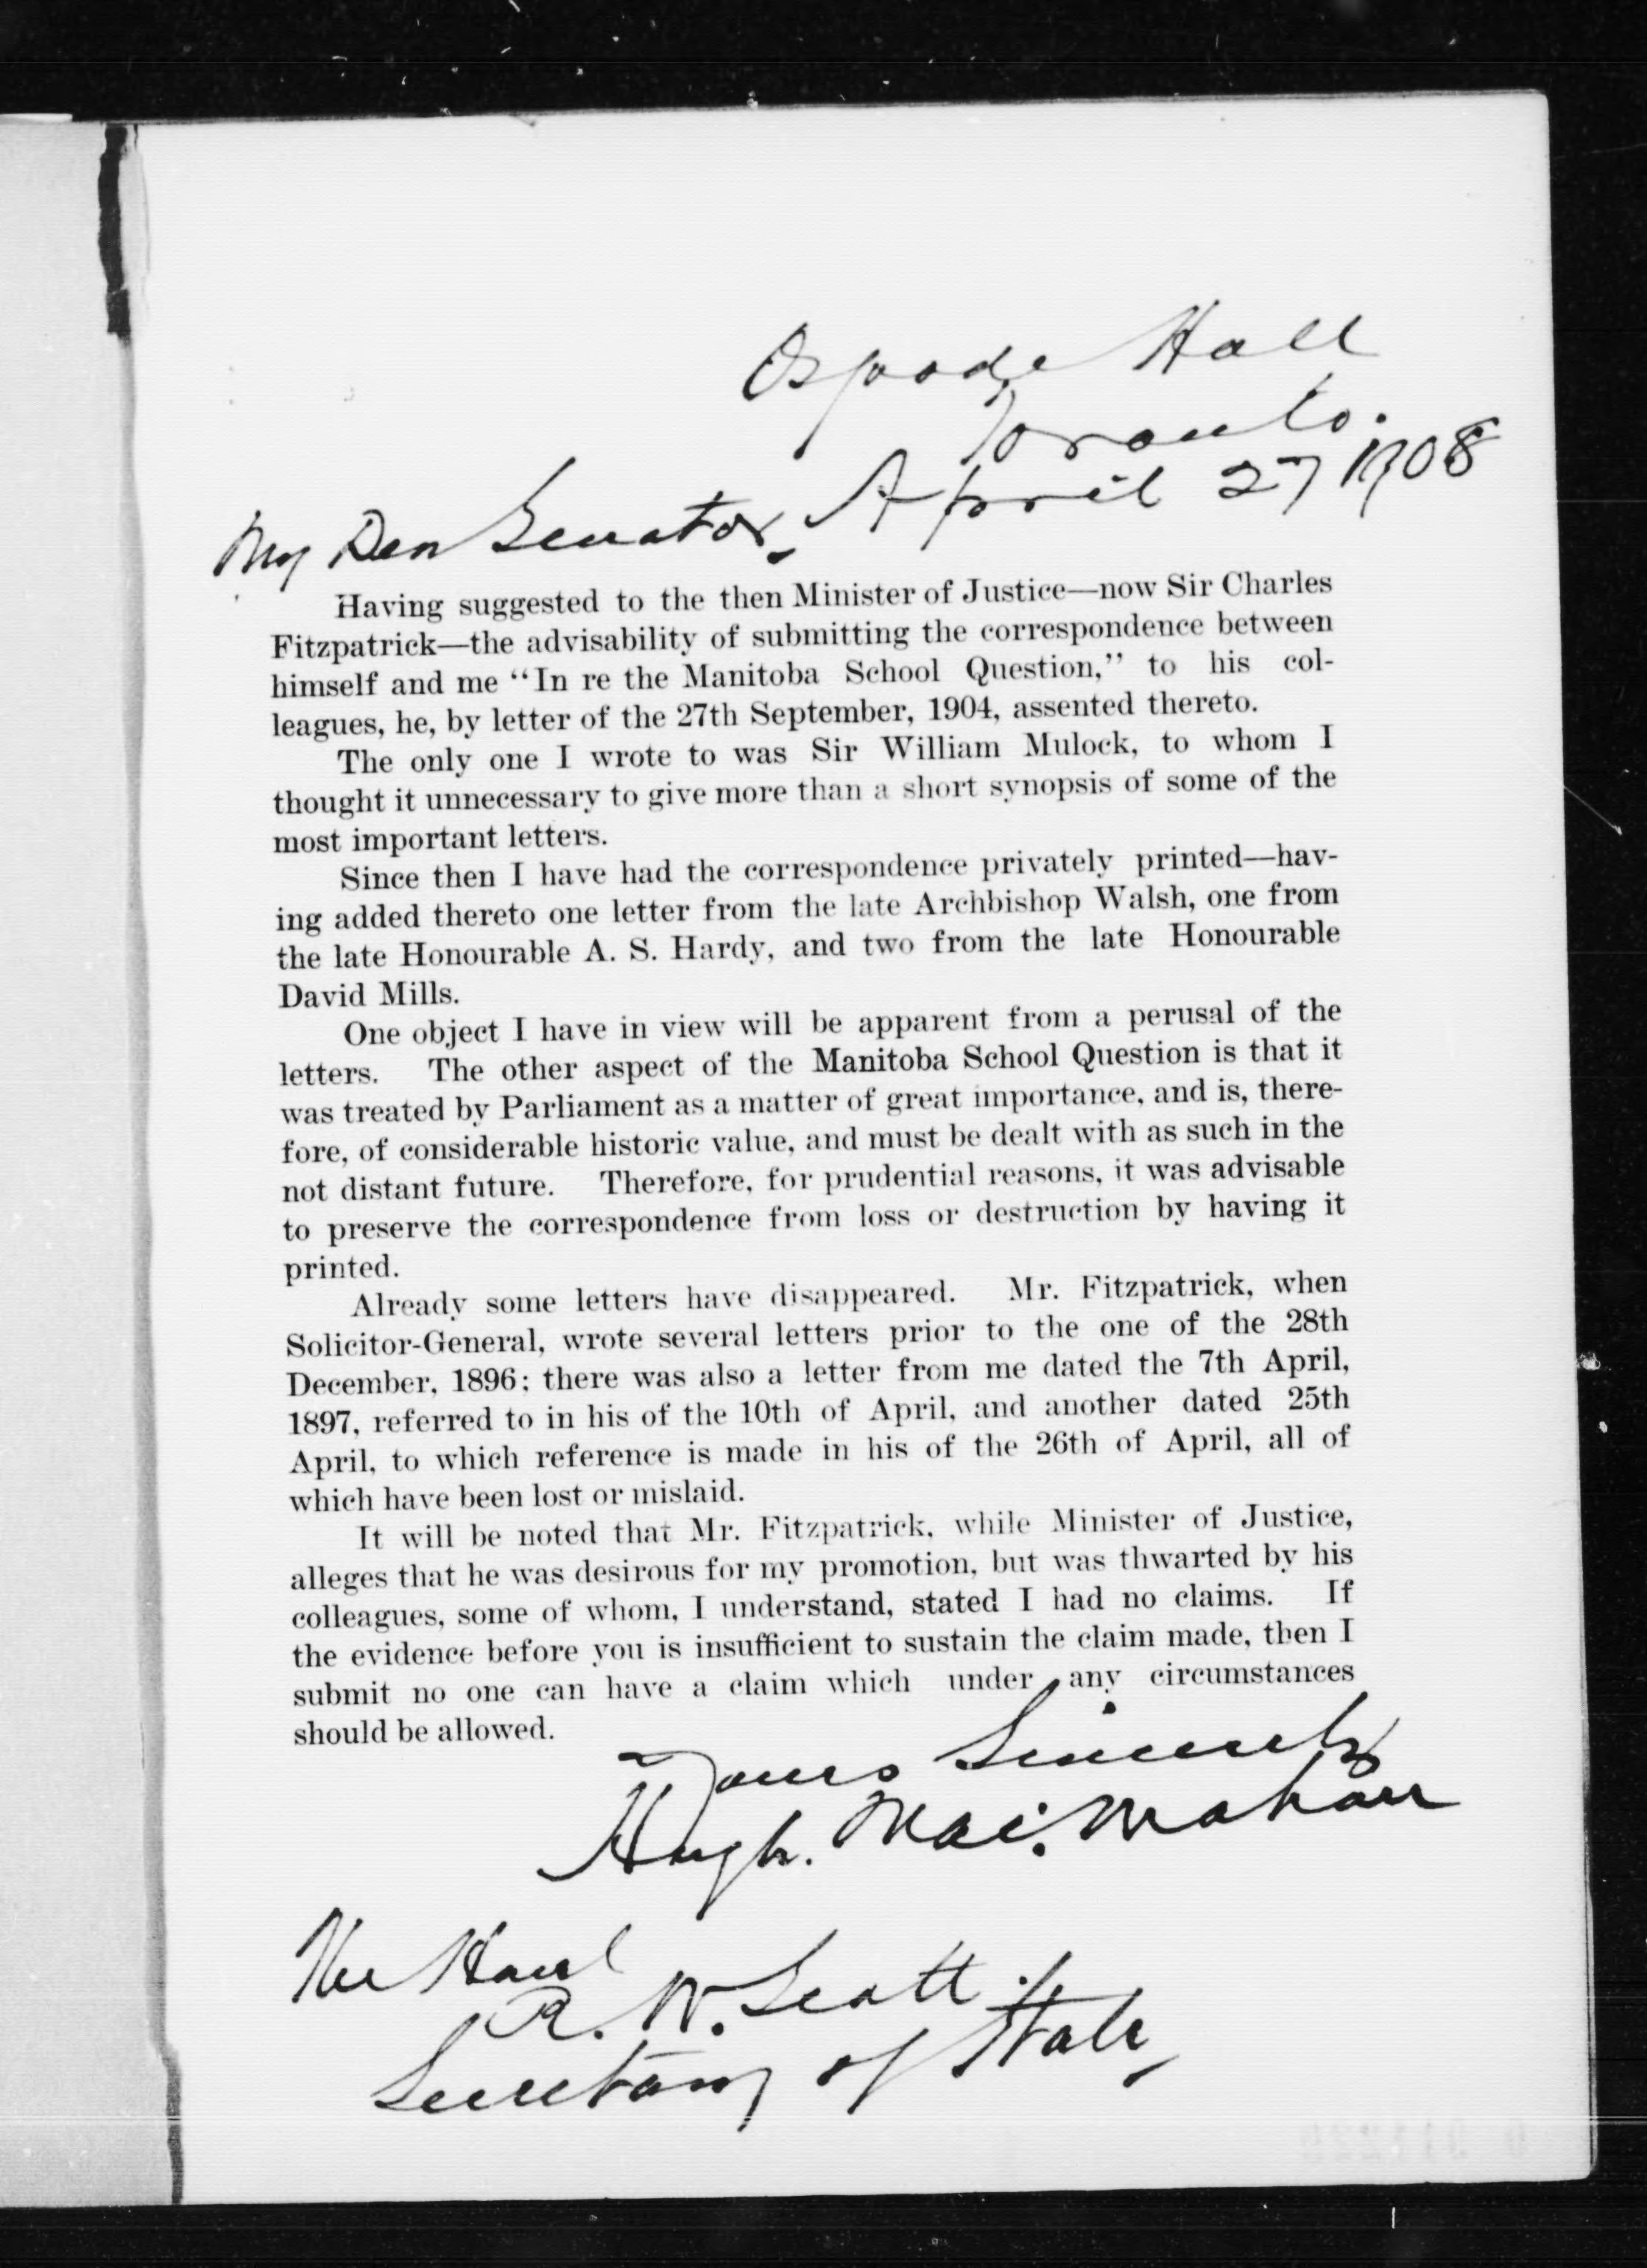 Osgoode Hall
Toronto.
April 27 1908
My Dear Senator,
Having suggested to the then Minister of Justice—now Sir Charles
Fitzpatrick—the advisability of submitting the correspondence between
himself and me "In re the Manitoba School Question," to his col-
leagues, he, by letter of the 27th September, 1904, assented thereto.
The only one I wrote to was Sir William Mulock, to whom I
thought it unnecessary to give more than a short synopsis of some of the
most important letters.
Since then I have had the correspondence privately printed—hav-
ing added thereto one letter from the late Archbishop Walsh, one from
the late Honourable A. S. Hardy, and two from the late Honourable
David Mills.
One object I have in view will be apparent from a perusal of the
letters. The other aspect of the Manitoba School Question is that it
was treated by Parliament as a matter of great importance, and is, there-
fore, of considerable historic value, and must be dealt with as such in the
not distant future. Therefore, for prudential reasons, it was advisable
to preserve the correspondence from loss or destruction by having it
printed.
Already some letters have disappeared. Mr. Fitzpatrick, when
Solicitor-General, wrote several letters prior to the one of the 28th
December, 1896; there was also a letter from me dated the 7th April,
1897, referred to in his of the 10th of April, and another dated 25th
April, to which reference is made in his of the 26th of April, all of
which have been lost or mislaid.
It will be noted that Mr. Fitzpatrick, while Minister of Justice,
alleges that he was desirous for my promotion, but was thwarted by his
colleagues, some of whom, I understand, stated I had no claims. If
the evidence before you is insufficient to sustain the claim made, then I
submit no one can have a claim which under any circumstances
should be allowed.
Yours Sincerely
Hugh. Mac.Mahon
The Honl
R. W. Scott
Secretary of State,